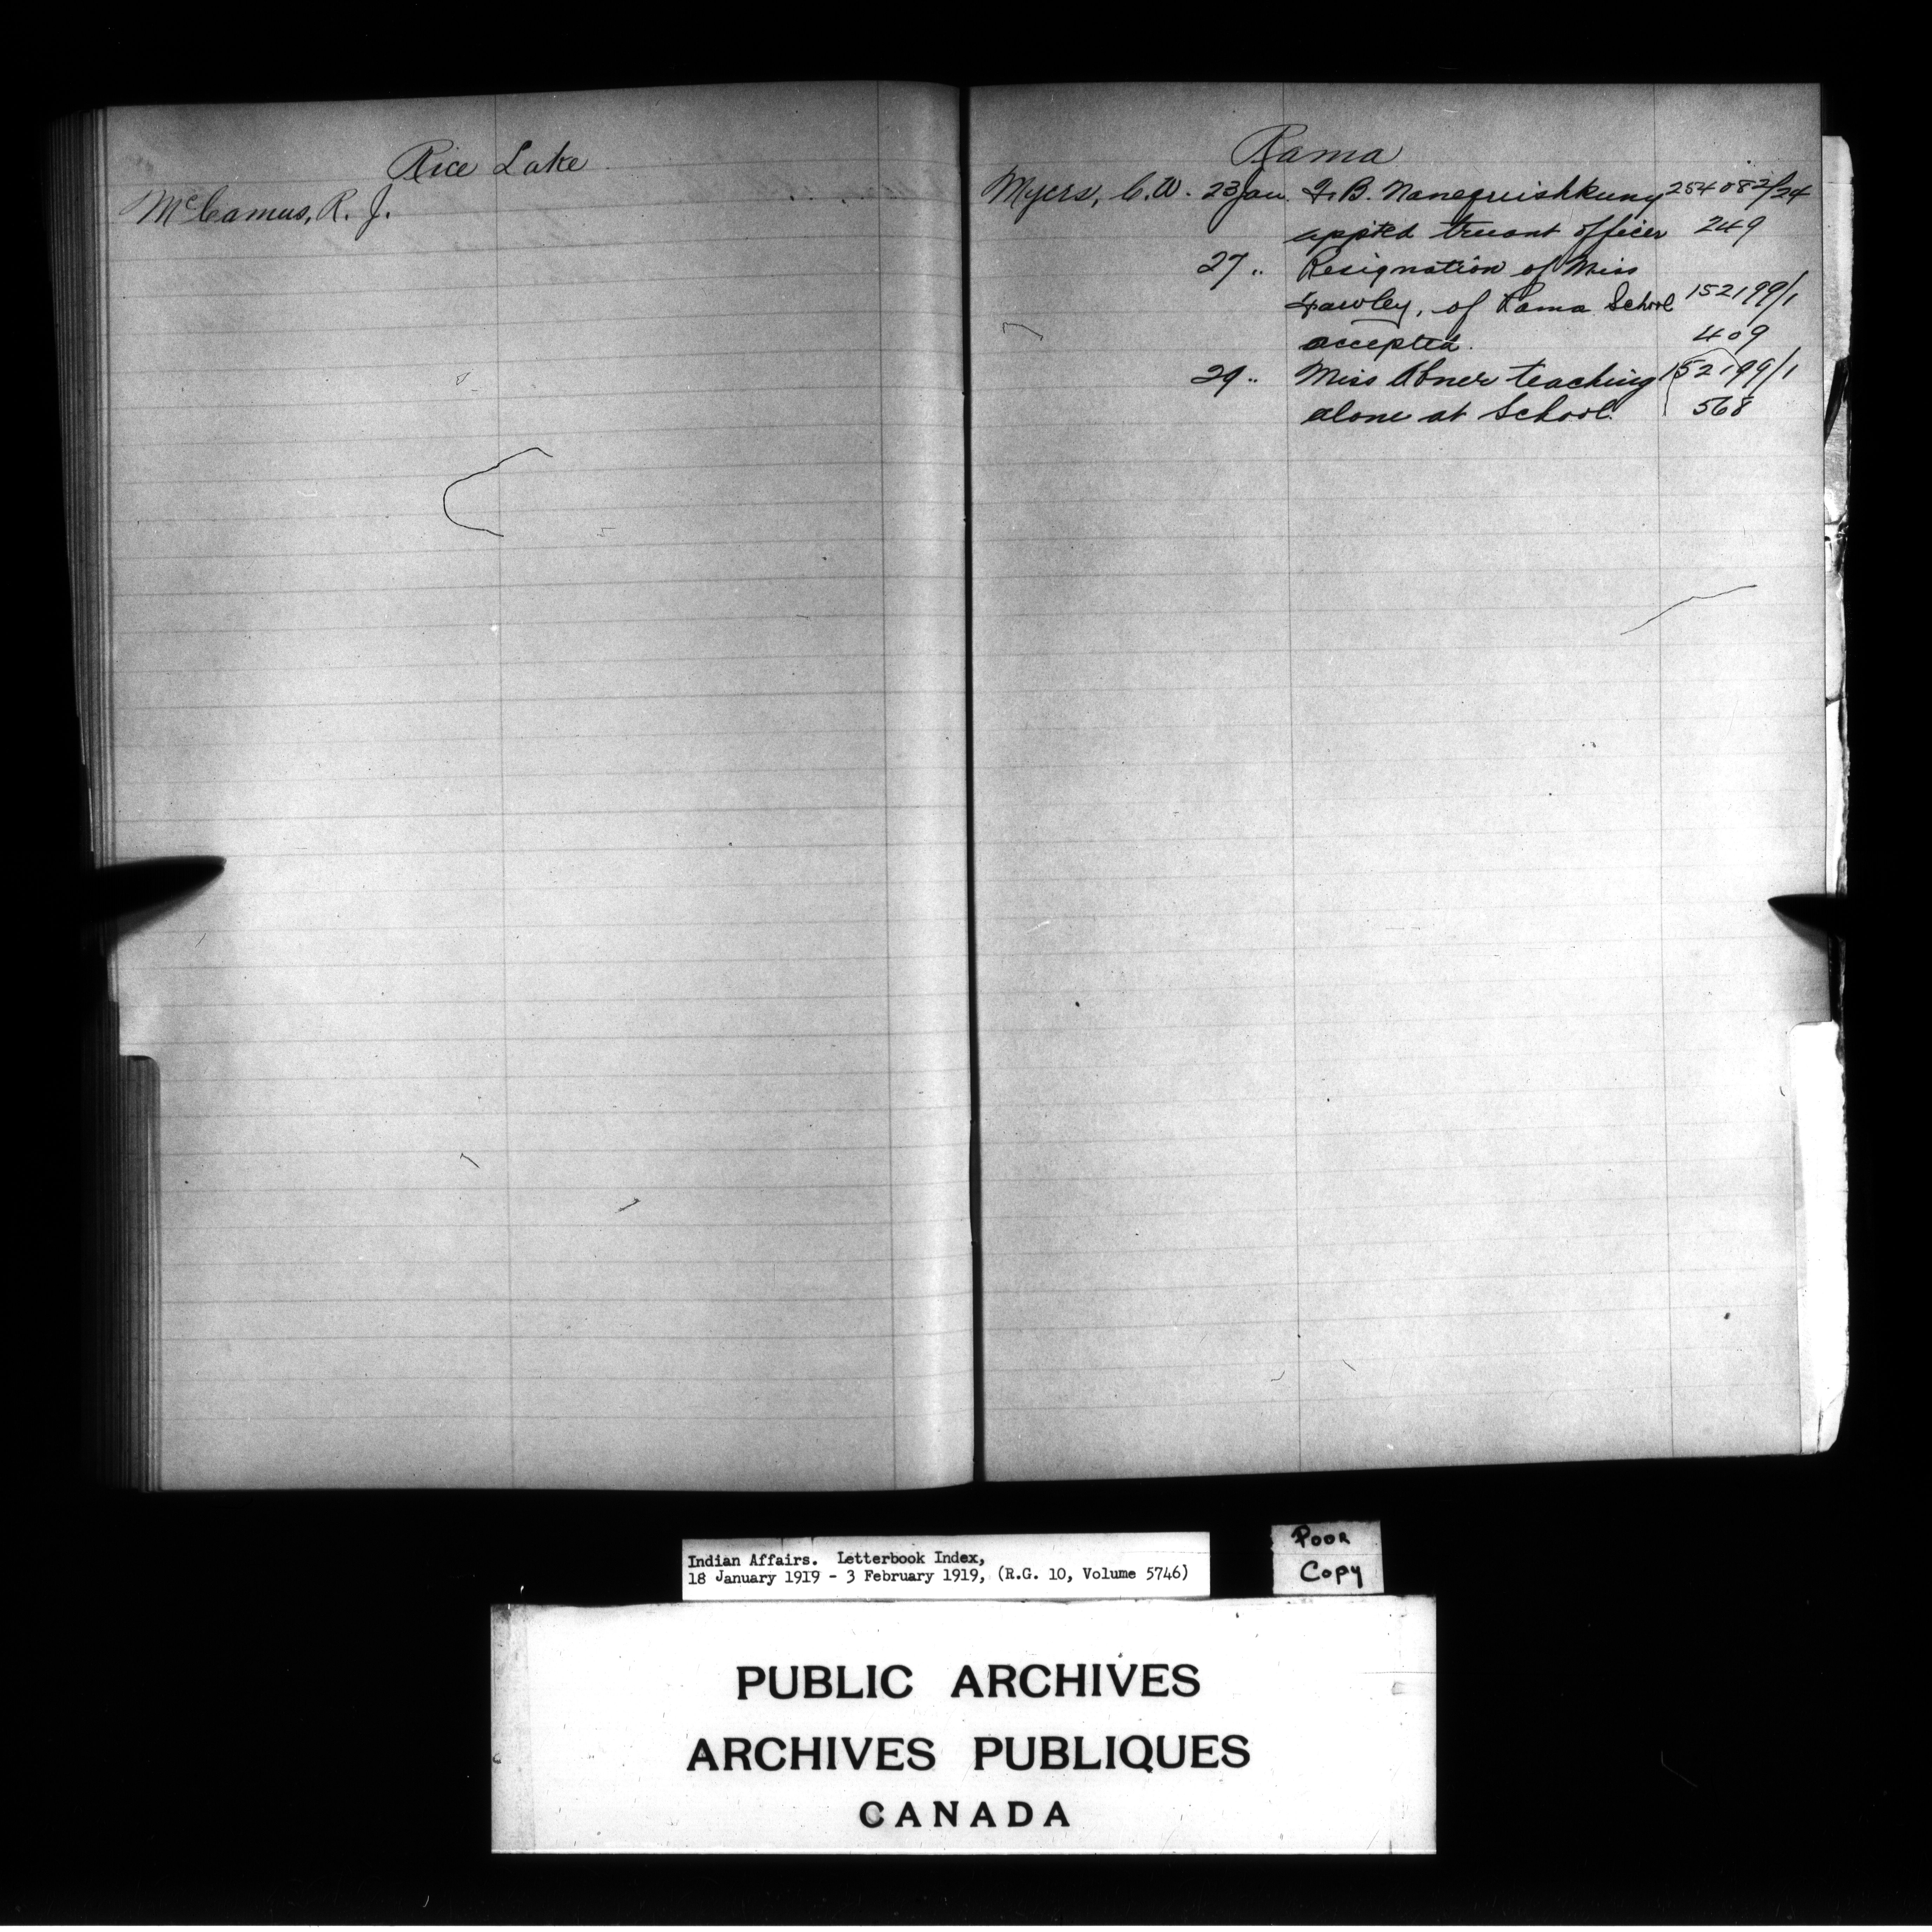 Rice Lake
McCamus, R. J.
Rama
Myers, C. W. 23 Jan. B. 254082/24
appted truant officer 249
27 " Resignation of Miss
of Rama School 152199/1
accepted. 409
29 " Miss Abner teaching 152199/1
alone at School. 568
Indian Affairs. Letterbook Index,
18 January 1919 - 3 February 1919, (R.G. 10, Volume 5746)
Poor
Copy
PUBLIC ARCHIVES
ARCHIVES PUBLIQUES
CANADA